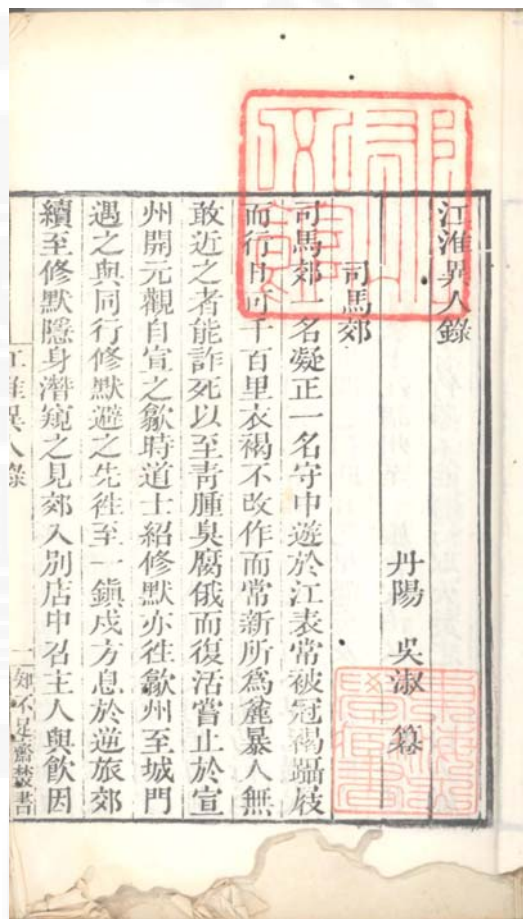 江淮異人錄
丹陽 吳淑 篹
司馬郊
司馬郊一名凝正一名守中遊於江表常被冠褐躡屐
而行日可千百里衣褐不改作而常新所為麄暴人無
敢近之者能詐死以至青腫臭腐俄而復活嘗止於宣
州開元觀自宣之歙時道士紹修默亦徃歙州至城門
遇之與同行修默避之先徃至一鎮戍方息於逆旅郊
續至修默隱身潛窺之見郊入別店中召主人與飲因
江淮異人錄
一
知不足齋叢書